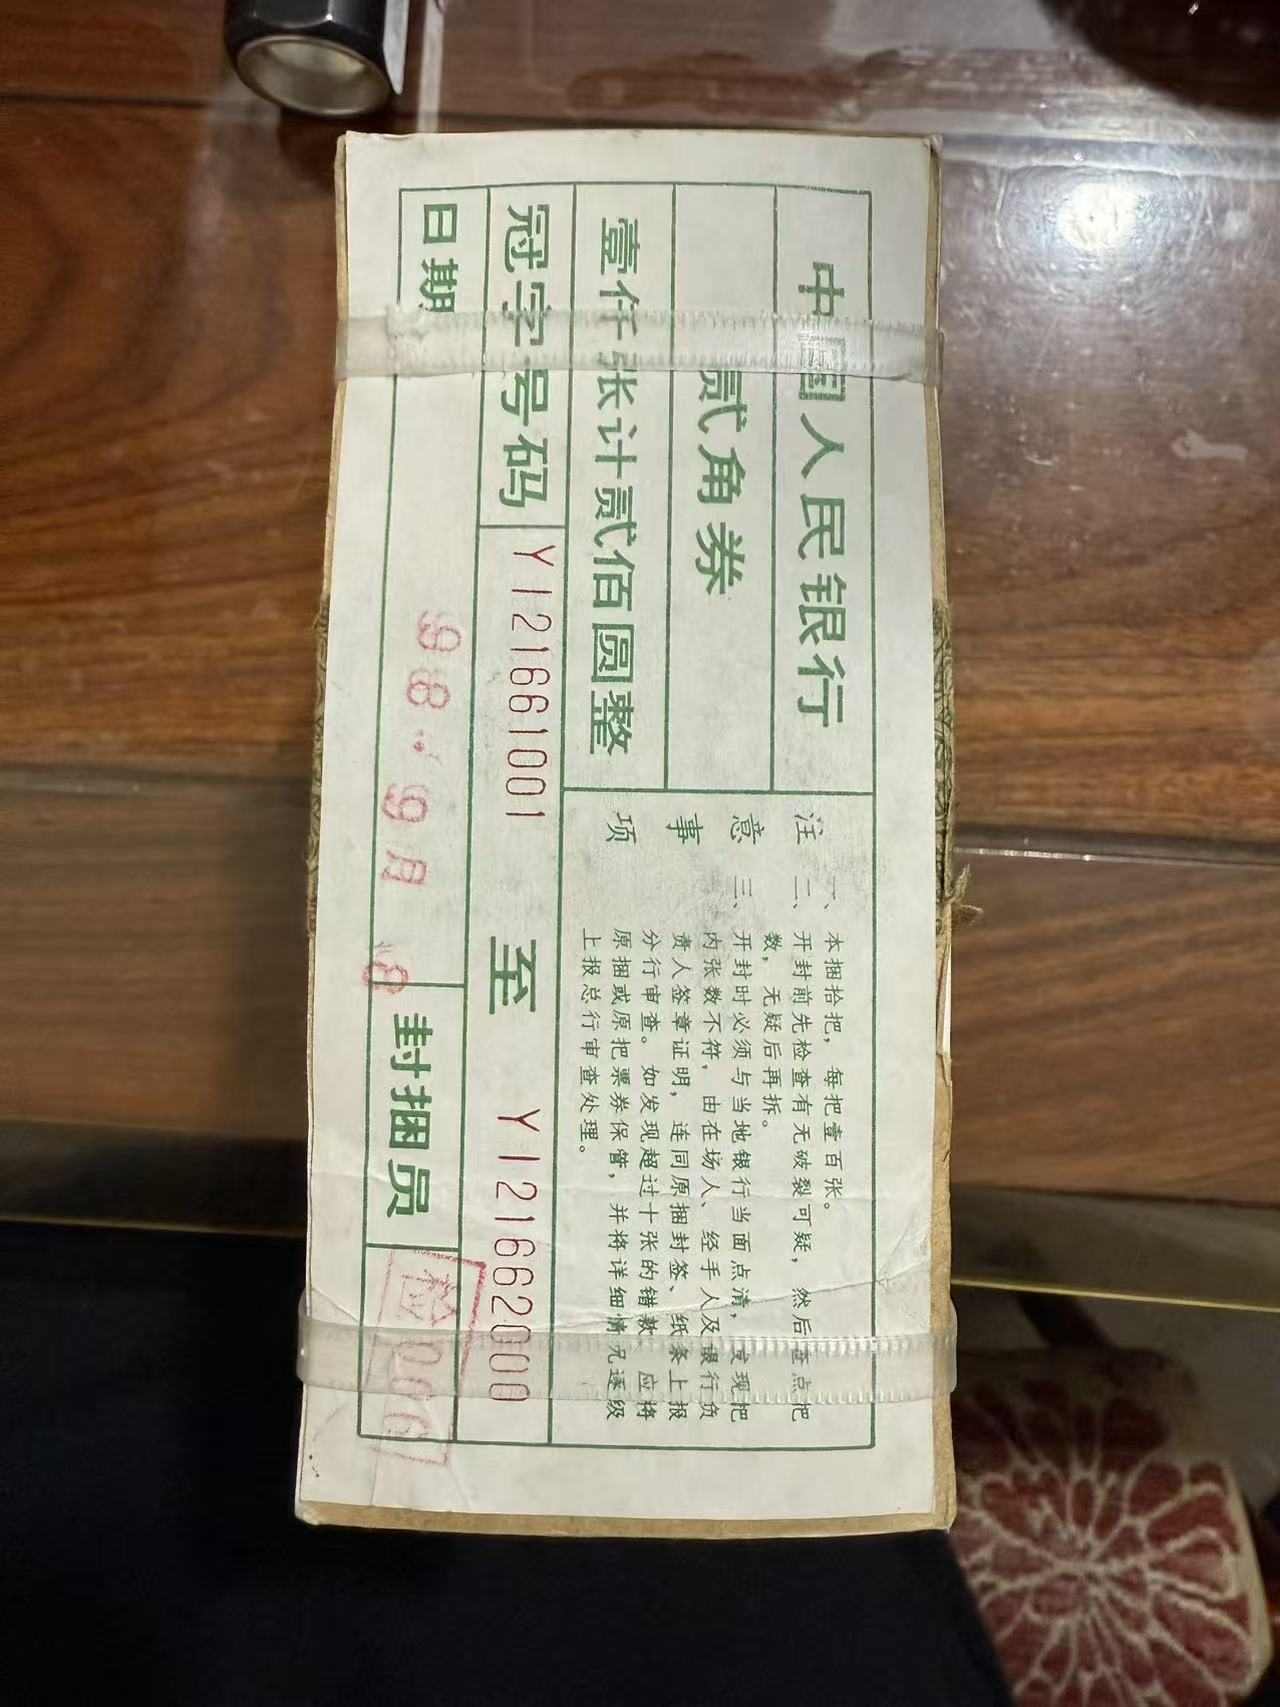 中国人民银行
贰角券
壹仟张计贰佰圆整
冠字号码
Y121661001 至 Y121662000
日期
98.9月
封捆员
检006
注意事项
一、本捆拾把，每把壹百张。
二、开封前先检查有无破裂可疑，然后查点把
数，无疑后再拆。
三、开封时必须与当地银行当面点清，发现把
内张数不符，由在场人、经手人及银行负
责人签章证明，连同原捆封签、纸条上报
分行审查。如发现超过十张的错款，应将
原捆或原把票券保管，并将详细情况逐级
上报总行审查处理。